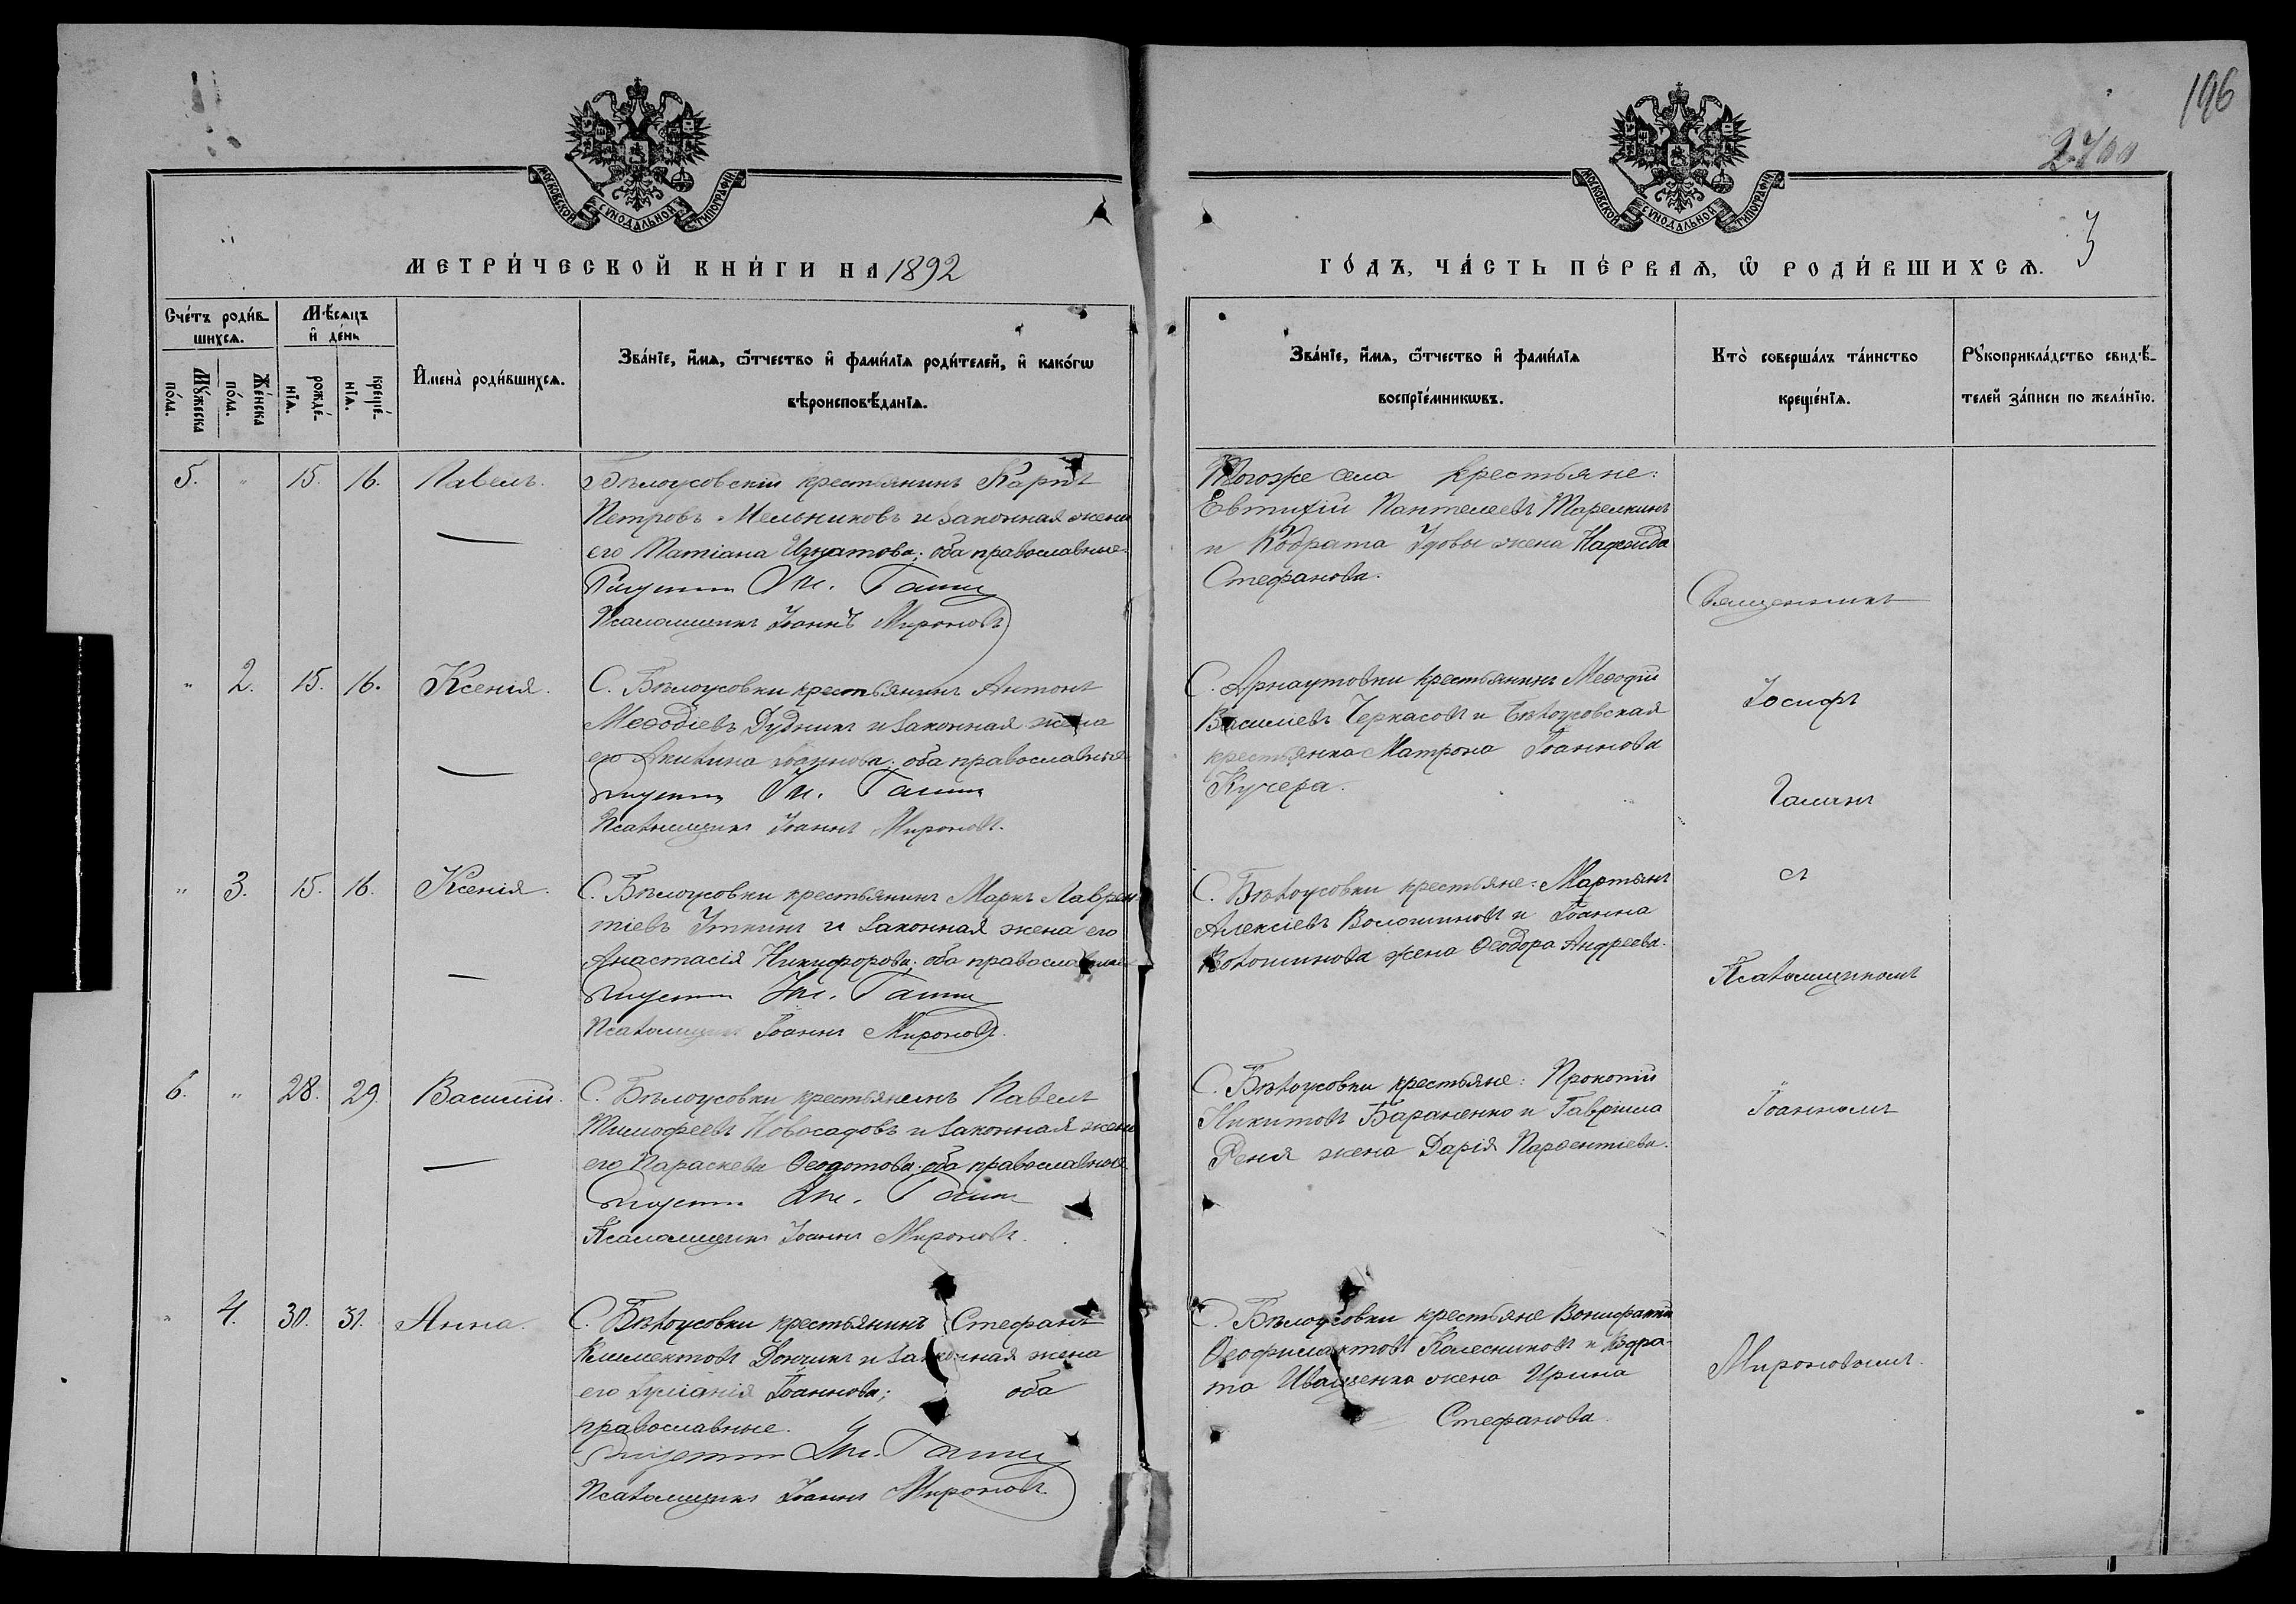 196
2700
МОСКОВСКОЙ СѴНОДАЛЬНОЙ ТИПОГРАФІИ
МОСКОВСКОЙ СѴНОДАЛЬНОЙ ТИПОГРАФІИ
3
МЕТРИ́ЧЕСКОЙ КНИ́ГИ НА 1892
ГО́ДЪ, ЧА́СТЬ ПЕ́РВАѦ, Ѡ РОДИ́ВШИХСѦ.
Сче́тъ роди́в-
шихсѧ.
Мѣ́сѧцъ
и҆ де́нь
Мꙋ́жеска
по́ла.
Же́нска
по́ла.
рожде́-
нїѧ.
креще́-
нїѧ.
И҆мена̀ роди́вшихсѧ.
Зва́нїе, и҆́мѧ, ѻ҆́тчество и҆ фами́лїѧ роди́телей, и҆ како́гѡ
вѣроисповѣ́данїѧ.
Зва́нїе, и҆́мѧ, ѻ҆́тчество и҆ фами́лїѧ
воспрїе́мникѡвъ.
Кто̀ соверша́лъ та́инство
креще́нїѧ.
Рꙋкоприкла́дство свидѣ́-
телей за́писи по жела́нїю.
5. " 15. 16. Павелъ.
Бѣлоусовскій крестьянинъ Карпъ
Петровъ Мельниковъ и законная жена
его Татіана Игнатова; оба православные.
Іос. Галинъ
Псаломщикъ Іоаннъ Мироновъ
Тогоже села крестьяне:
Евтихій Пантелеевъ Тарелкинъ
и Кодрата Удовы жена Надежда
Стефанова.
" 2. 15. 16. Ксенія.
С. Бѣлоусовки крестьянинъ Антонъ
Меѳодіевъ Дудникъ и законная жена
его Акилина Іоаннова; оба православные.
Іос. Галинъ
Псаломщикъ Іоаннъ Мироновъ.
С. Арнаутовки крестьянинъ Меѳодій
Василіевъ Черкасовъ и Бѣлоусовская
крестьянка Матрона Іоаннова
Кучера.
" 3. 15. 16. Ксенія.
С. Бѣлоусовки крестьянинъ Маркъ Лаврен-
тіевъ Уткинъ и законная жена его
Анастасія Никифорова; оба православные.
Іос. Галинъ
Псаломщикъ Іоаннъ Мироновъ.
С. Бѣлоусовки крестьяне: Мартынъ
Алексіевъ Волошиновъ и Іоанна
Волошинова жена Ѳеодора Андреева.
6. " 28. 29. Василій.
С. Бѣлоусовки крестьянинъ Павелъ
Тимофеевъ Новосадовъ и законная жена
его Параскева Ѳеодотова; оба православные.
Іос. Галинъ
Псаломщикъ Іоаннъ Мироновъ.
С. Бѣлоусовки крестьяне: Прокопій
Никитовъ Бараненко и Гавріила
Реня жена Дарія Парѳентіева.
" 4. 30. 31. Анна.
С. Бѣлоусовки крестьянинъ Стефанъ
Климентовъ Дончикъ и законная жена
его Іуліанія Іоаннова; оба
православные.
Іос. Галинъ
Псаломщикъ Іоаннъ Мироновъ.
С. Бѣлоусовки крестьяне Вонифатій
Ѳеофилактовъ Колесниковъ и Кодра-
та Иващенка жена Ирина
Стефанова.
Священникъ
Іосифъ
Галинъ
съ
Псаломщикомъ
Іоанномъ
Мироновымъ.